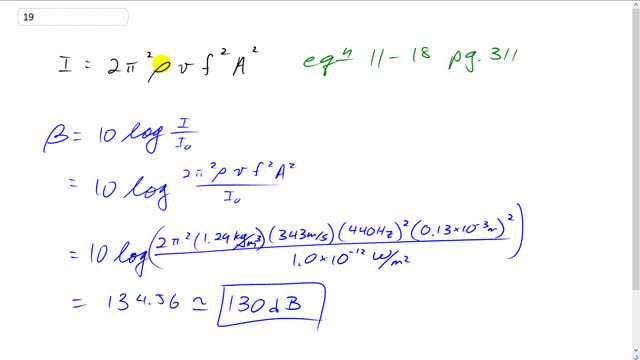 19
I = 2π²ρvf²A² eqⁿ 11-18 pg. 311
β = 10 log I/I₀
= 10 log 2π²ρvf²A²/I₀
= 10 log(2π²(1.29 kg/m³)(343 m/s)(440Hz)²(0.13×10⁻³m)²/1.0×10⁻¹² W/m²)
= 134.56 ≃ 130 dB